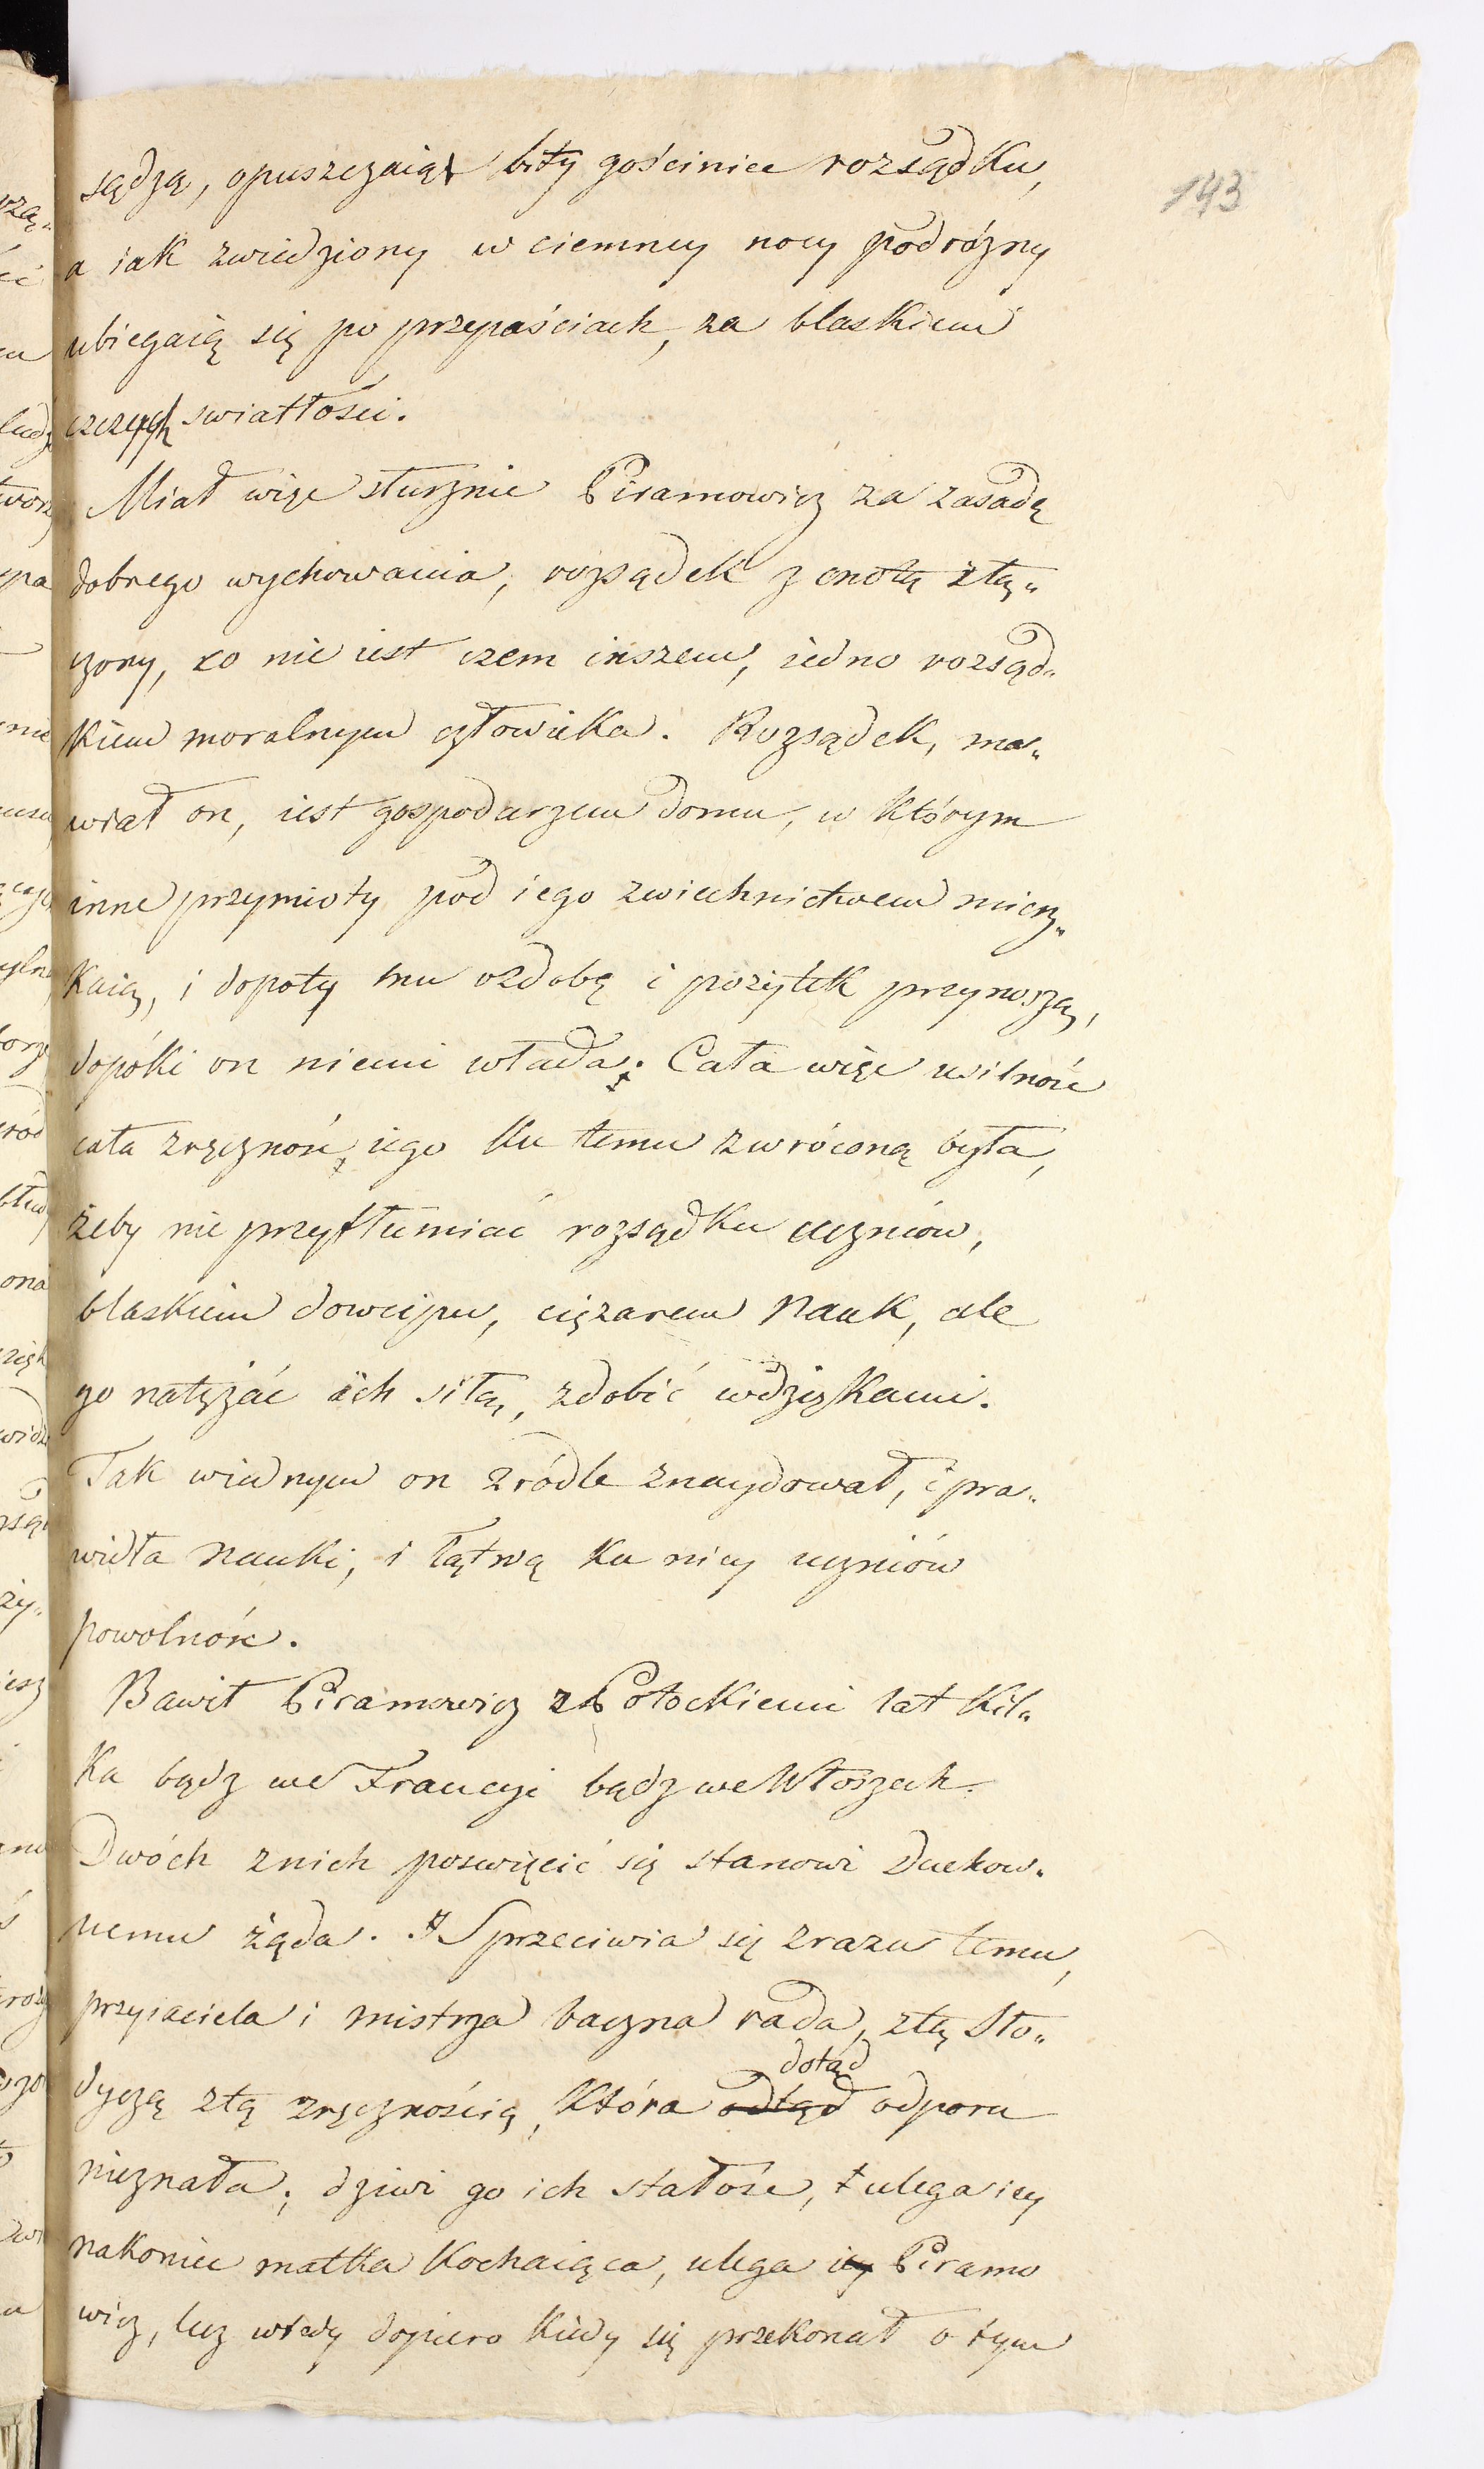 143
sądzą, opuszczaią bity gościniec rozsądku,
a iak zwiedziony w ciemney nocy podróżny
ubiegaią się po przepaściach, za blaskiem
czczey swiatłości.
Miał więc słusznie Piramowicz za zasadę
dobrego wychowania, rozsądek z cnotą złą„
czony, co nie iest czem inszem, iedno rozsąd„
kiem moralnym człowieka. Rozsądek, ma„
wiał on, iest gospodarzem domu, w którym
inne przymioty pod iego zwiechnictwem miesz„
kaią, i dopoty mu ozdobę i pożytek przynoszą,
dopóki on niemi włada. Cała więc usilność
cała zręczność iego ku temu zwróconą była,
żeby nie przytłumiać rozsądku uczniów,
blaskiem dowcipu, ciężarem Nauk, ale
go natężać ich siłą, zdobić wdziękami.
Tak wiednym on zródle znaydował, i pra„
widła Nauki, i łatwą ku niey uczniów
powolność.
Bawił Piramowicz z Potockiemi lat kil„
ka bądz we Francyi bądz we Włoszech.
Dwóch znich poswięcić się stanowi Duchow„
nemu żąda. Sprzeciwia się zrazu temu,
przyiaciela i mistrza baczna rada, ztą sło„
dyczą ztą zręcznością, która odtąd dotąd odporu
nieznała; dziwi go ich stałość, ulega iey
nakoniec matka kochaiąca, ulega iey Piramo
wicz, lecz wtedy dopiero kiedy się przekonał o tym